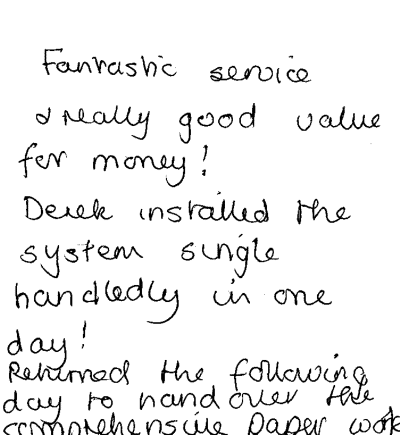 Fantastic service
& really good value
for money!
Derek installed the
system single
handledly in one
day!
Returned the following
day to hand over the
comprehensive paper work